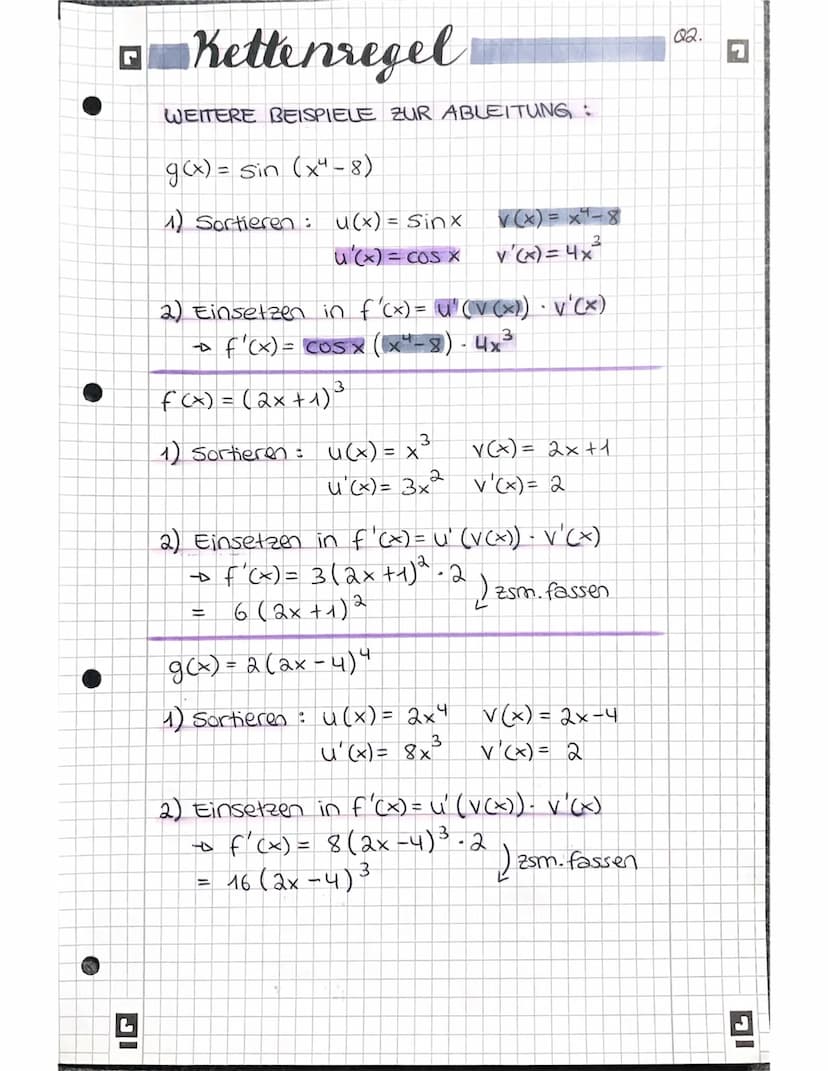 Kettenregel
Q2.
WEITERE BEISPIELE ZUR ABLEITUNG :
g(x) = sin (x⁴ - 8)
1) Sortieren : u(x) = sin x v(x) = x⁴ - 8
u'(x) = cos x v'(x) = 4x³
2) Einsetzen in f'(x) = u'(v(x)) · v'(x)
→ f'(x) = cos x (x⁴ - 8) · 4x³
f(x) = (2x + 1)³
1) Sortieren : u(x) = x³ v(x) = 2x + 1
u'(x) = 3x² v'(x) = 2
2) Einsetzen in f'(x) = u'(v(x)) · v'(x)
→ f'(x) = 3(2x + 1)² · 2
zsm. fassen
= 6(2x + 1)²
g(x) = 2(2x - 4)⁴
1) Sortieren : u(x) = 2x⁴ v(x) = 2x - 4
u'(x) = 8x³ v'(x) = 2
2) Einsetzen in f'(x) = u'(v(x)) · v'(x)
→ f'(x) = 8(2x - 4)³ · 2
zsm. fassen
= 16(2x - 4)³